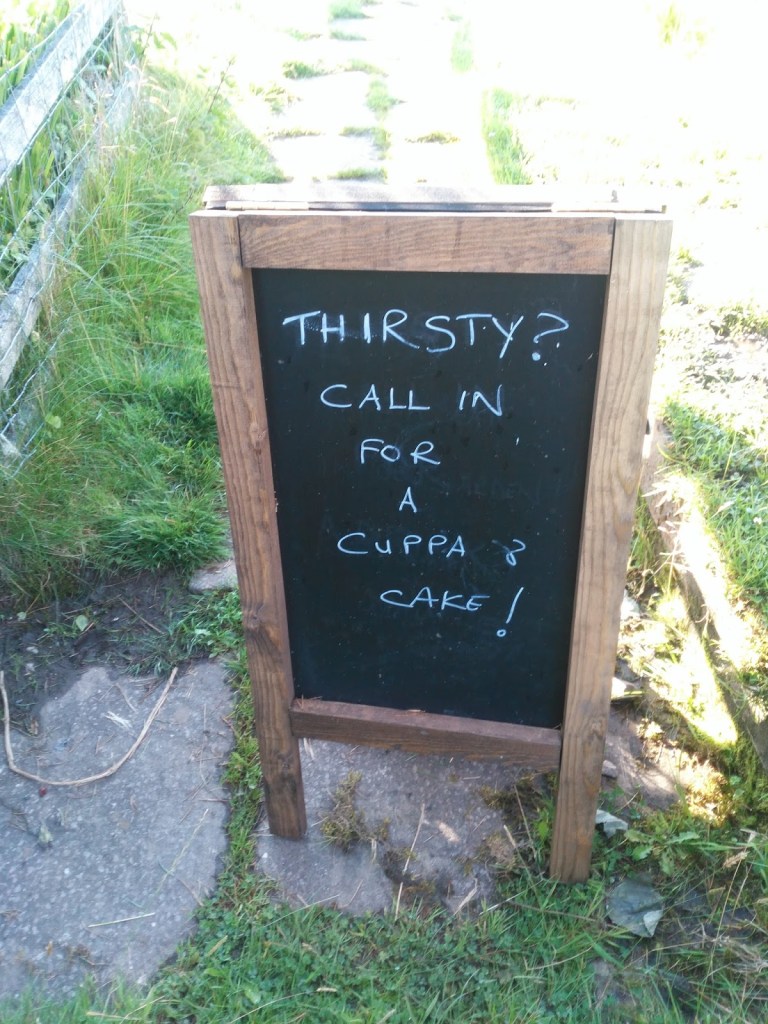 THIRSTY?
CALL IN
FOR
A
CUPPA &
CAKE!